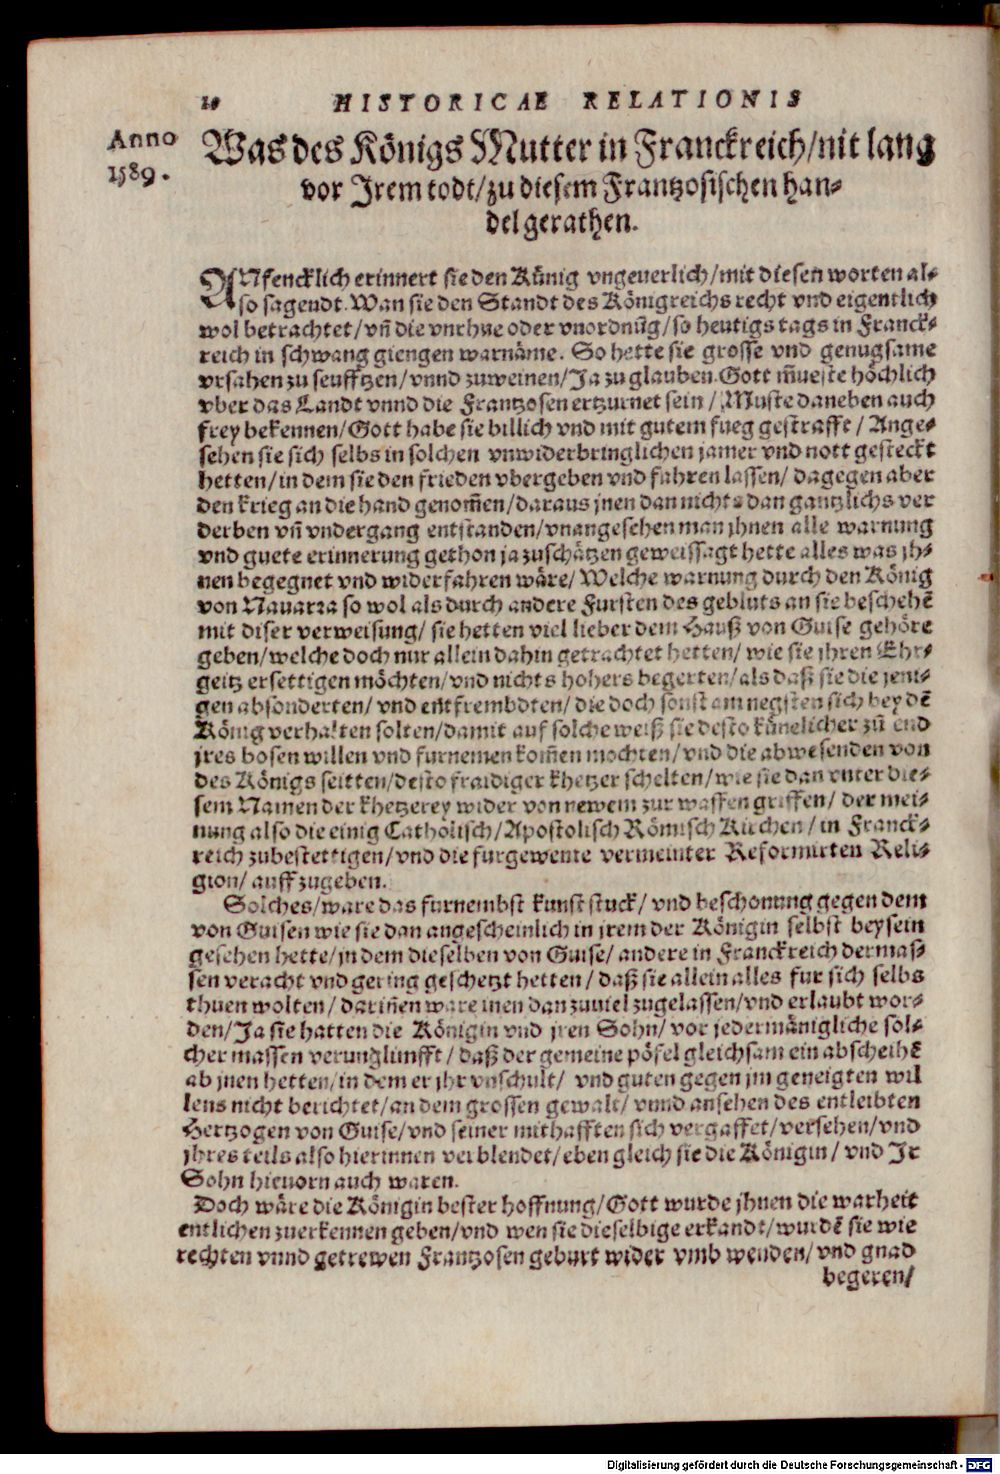 HISTORICAE RELATIONIS
Anno
1589.
Was des Königs Mutter in Franckreich/nit lang
vor Jrem todt/zu diesem Frantzosischen han-
del gerathen.
ANfencklich erinnert sie den Künig vngeuerlich/mit diesen worten al-
so sagendt. Wan sie den Standt des Königreichs recht vnd eigentlich
wol betrachtet/vñ die vnrhue oder vnordnũg/so heutigs tags in Franck-
reich in schwang giengen warnäme. So hette sie grosse vnd genugsame
vrsahen zu seufftzen/vnnd zuweinen/Ja zu glauben. Gott m̃ueste höchlich
vber das Landt vnnd die Frantzosen ertzurnet sein/Muste daneben auch
frey bekennen/Gott habe sie billich vnd mit gutem fueg gestrafft/Ange-
sehen sie sich selbs in solchen vnwiderbringlichen jamer vnd nott gesteckt
hetten/in dem sie den frieden vbergeben vnd fahren lassen/dagegen aber
den krieg an die hand genom̃en/daraus jnen dan nichts dan gantzlichs ver
derben vñ vndergang entstanden/vnangesehen man jhnen alle warnung
vnd guete erinnerung gethon ja zuschätzen geweissagt hette alles was jh-
nen begegnet vnd widerfahren wäre/Welche warnung durch den König
von Nauarra so wol als durch andere Fursten des gebluts an sie beschehẽ
mit diser verweisung/sie hetten viel lieber dem Hauß von Guise gehöre
geben/welche doch nur allein dahin getrachtet hetten/wie sie jhren Ehr-
geitz ersettigen möchten/vnd nichts hohers begerten/als daß sie die jeni-
gen absonderten/vnd entfrembdten/die doch sonst am negsten sich bey dẽ
König verhalten solten/damit auf solche weiß sie desto künelicher zũ end
jres bosen willen vnd furnemen kom̃en mochten/vnd die abwesenden von
des Königs seitten/desto fraidiger khetzer schelten/wie sie dan vnter die-
sem Namen der khetzerey wider von newem zur waffen griffen/der mei-
nung also die einig Catholisch/Apostolisch Römisch Kirchen/in Franck-
reich zubestettigen/vnd die furgewente vermeinter Reformirten Reli-
gion/auffzugeben.
Solches/ware das furnembst kunst stuck/vnd beschonung gegen dem
von Guisen wie sie dan angescheinlich in jrem der Königin selbst beysein
gesehen hette/in dem dieselben von Guise/andere in Franckreich dermas-
sen veracht vnd gering geschetzt hetten/daß sie allein alles fur sich selbs
thuen wolten/darin̄en ware inen dan zuuiel zugelassen/vnd erlaubt wor-
den/Ja sie hatten die Königin vnd jren Sohn/vor jedermänigliche sol-
cher massen verunglimfft/daß der gemeine pöfel gleichsam ein abscheihẽ
ab jnen hetten/in dem er jhr vnschult/vnd guten gegen jm geneigten wil
lens nicht berichtet/an dem grossen gewalt/vnnd ansehen des entleibten
Hertzogen von Guise/vnd seiner mithafften sich vergaffet/versehen/vnd
jhres teils also hierinnen verblendet/eben gleich sie die Königin/vnd Jr
Sohn hieuorn auch waren.
Doch wäre die Königin bester hoffnung/Gott wurde jhnen die warheit
entlichen zuerkennen geben/vnd wen sie dieselbige erkandt/wurdẽ sie wie
rechten vnnd getrewen Frantzosen geburt wider vmb wenden/vnd gnad
begeren/
Digitalisierung gefördert durch die Deutsche Forschungsgemeinschaft - DFG